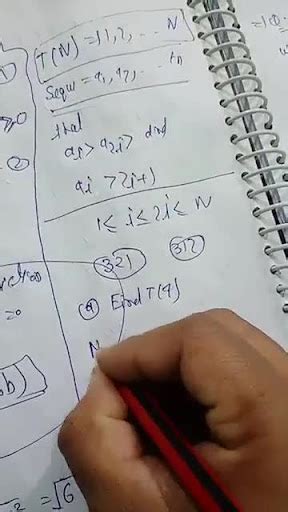 T(N) = 1, 2, ... N
Sequ = a₁, a₂, ... an
that
ai > a2i > and
ai > 2i+1
1 ≤ i ≤ 2i ≤ N
321
312
(a) Find T(9)
N
= 0
b)
= √6